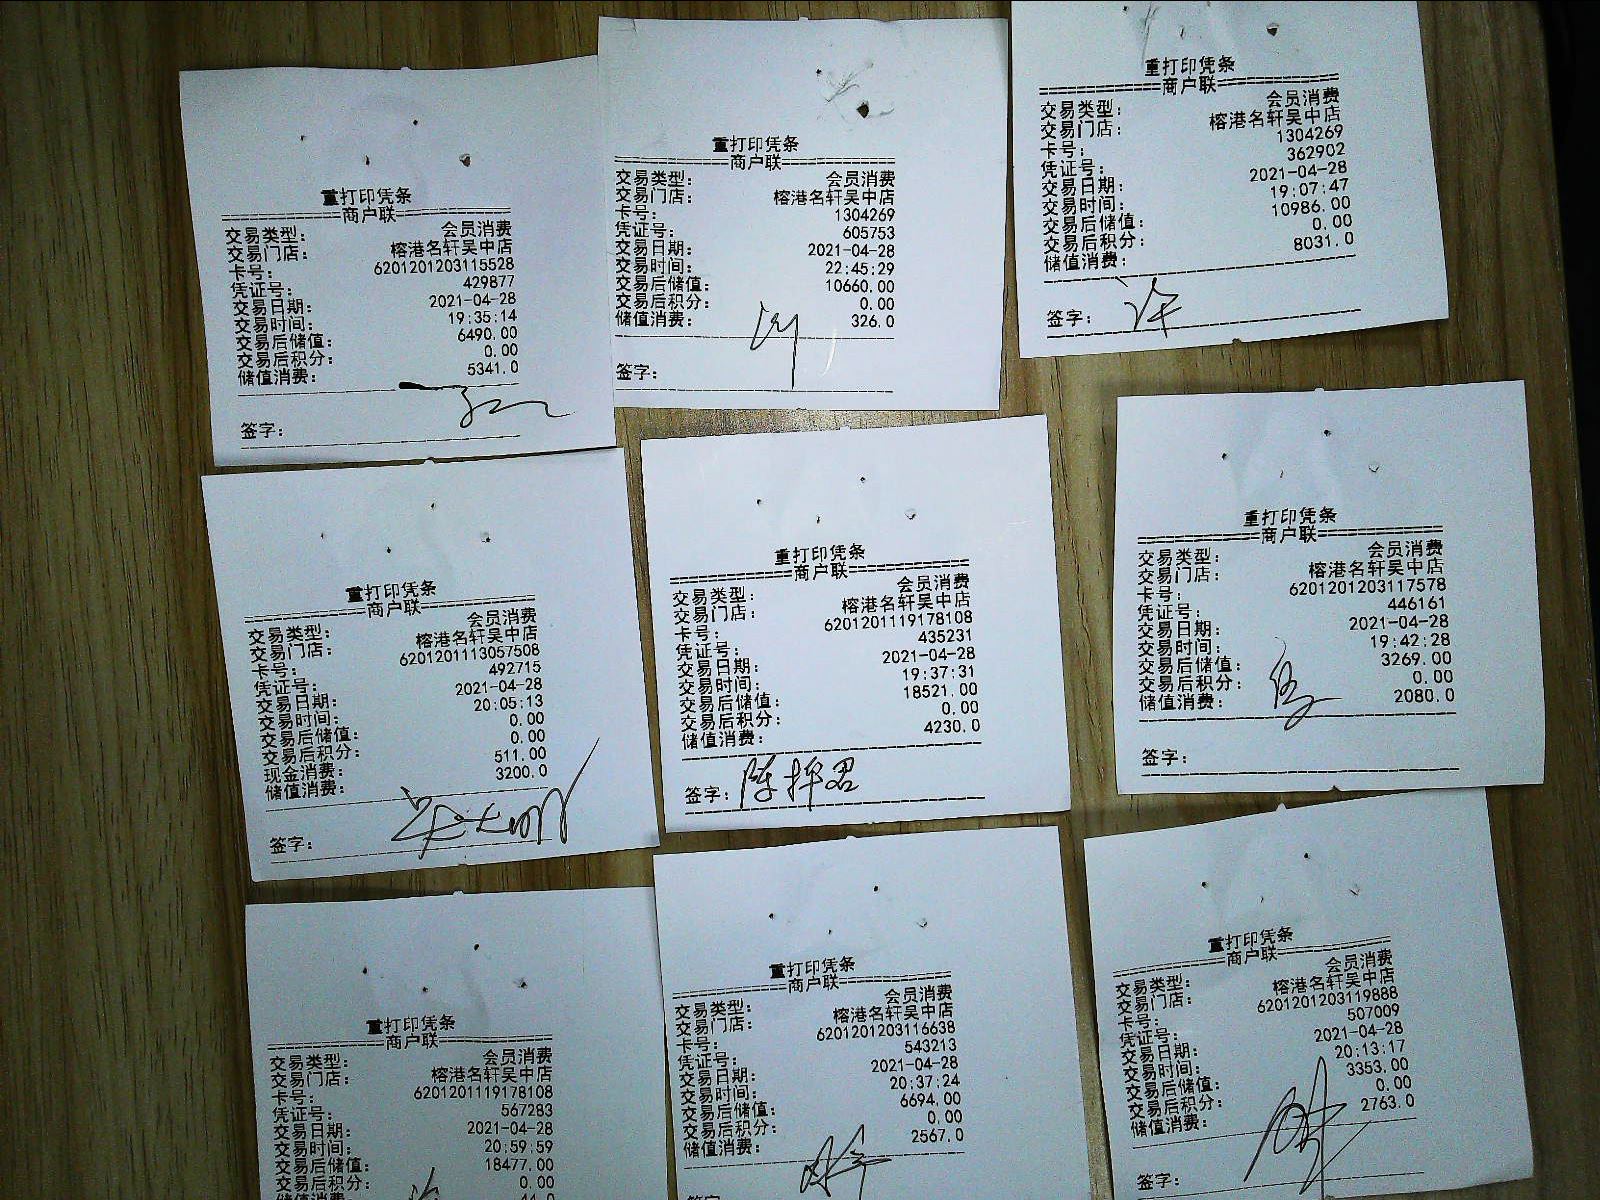 重打印凭条
商户联
交易类型: 会员消费
交易门店: 榕港名轩吴中店
卡号: 6201201203115528
凭证号: 429877
交易日期: 2021-04-28
交易时间: 19:35:14
交易后储值: 6490.00
交易后积分: 0.00
储值消费: 5341.0
签字:
重打印凭条
商户联
交易类型: 会员消费
交易门店: 榕港名轩吴中店
卡号: 1304269
凭证号: 605753
交易日期: 2021-04-28
交易时间: 22:45:29
交易后储值: 10660.00
交易后积分: 0.00
储值消费: 326.0
签字:
重打印凭条
商户联
交易类型: 会员消费
交易门店: 榕港名轩吴中店
卡号: 1304269
凭证号: 362902
交易日期: 2021-04-28
交易时间: 19:07:47
交易后储值: 10986.00
交易后积分: 0.00
储值消费: 8031.0
签字: 许
重打印凭条
商户联
交易类型: 会员消费
交易门店: 榕港名轩吴中店
卡号: 6201201113057508
凭证号: 492715
交易日期: 2021-04-28
交易时间: 20:05:13
交易后储值: 0.00
交易后积分: 0.00
现金消费: 511.00
储值消费: 3200.0
签字:
重打印凭条
商户联
交易类型: 会员消费
交易门店: 榕港名轩吴中店
卡号: 6201201119178108
凭证号: 435231
交易日期: 2021-04-28
交易时间: 19:37:31
交易后储值: 18521.00
交易后积分: 0.00
储值消费: 4230.0
签字:
重打印凭条
商户联
交易类型: 会员消费
交易门店: 榕港名轩吴中店
卡号: 6201201203117578
凭证号: 446161
交易日期: 2021-04-28
交易时间: 19:42:28
交易后储值: 3269.00
交易后积分: 0.00
储值消费: 2080.0
签字:
重打印凭条
商户联
交易类型: 会员消费
交易门店: 榕港名轩吴中店
卡号: 6201201119178108
凭证号: 567283
交易日期: 2021-04-28
交易时间: 20:59:59
交易后储值: 18477.00
交易后积分: 0.00
储值消费: 44.0
重打印凭条
商户联
交易类型: 会员消费
交易门店: 榕港名轩吴中店
卡号: 6201201203116638
凭证号: 543213
交易日期: 2021-04-28
交易时间: 20:37:24
交易后储值: 6694.00
交易后积分: 0.00
储值消费: 2567.0
签字:
重打印凭条
商户联
交易类型: 会员消费
交易门店: 榕港名轩吴中店
卡号: 6201201203119888
凭证号: 507009
交易日期: 2021-04-28
交易时间: 20:13:17
交易后储值: 3353.00
交易后积分: 0.00
储值消费: 2763.0
签字: